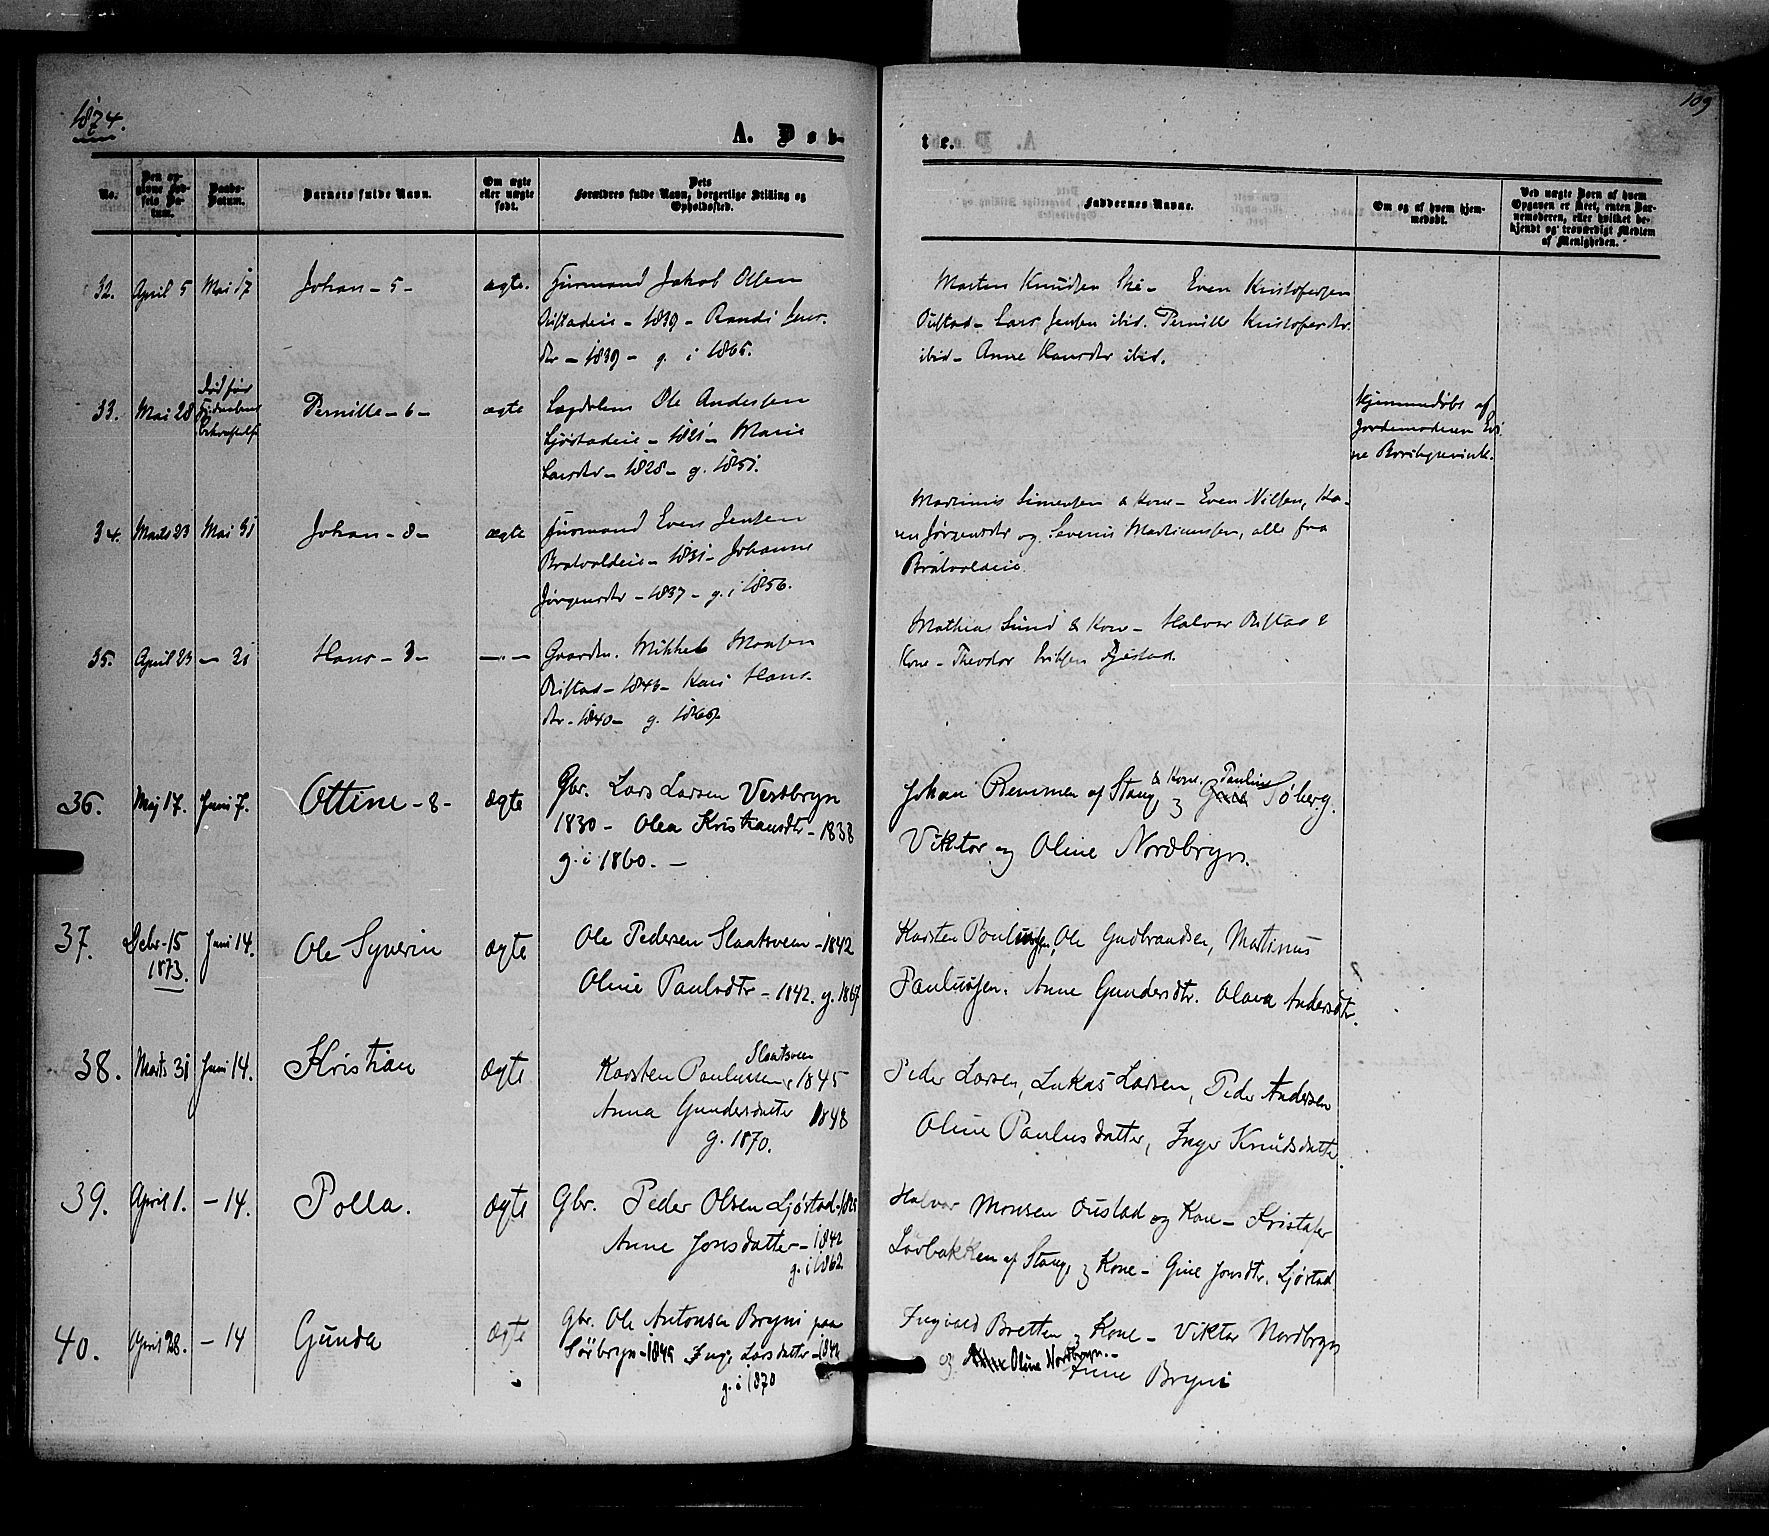 1874.
109
A. Døb-
te.
No.
Den op-
givne Fød-
sels Da-
tum.
Daabs-
Datum.
Barnets fulde Navn.
Om ægte
eller uægte
født.
Dets
Forældres fulde Navn, borgerlige Stilling og
Opholdssted.
Faddernes Navne.
Om og af hvem hjem-
medøbt.
Ved uægte Børn af hvem
Opgaven er skeet, enten Bar-
nemoderen, eller hvilket be-
kjendt og troværdigt Medlem
af Menigheden.
32. April 5 Mai 17 Johan - 5 - ægte. Huusmand Jakob Olsen
- 1839 - Randi Jens-
dtr - 1839 - g. i 1865.
Morten Knudsen Ski - Even Kristofersen
Lars Jensen ibid. Pernille Kristofersdtr
ibid - Anne Hansdtr ibid.
33. Mai 28 Død før Pernille - 6 - ægte Ole Andersen
- Marie
Larsdtr - 1828 - g. 1851.
Hjemmedøbt af
Jordemoderen
34. Marts 23 Mai 31 Johan - 8 - ægte Huusmand Even Jensen
Bratvoldeie - 1831 - Johanne
Jørgensdtr - 1837 - g. i 1856.
Martinus Simensen & Kone - Even Nilsen, Ka-
ren Jørgensdtr og Severin Martinussen, alle fra
Bratvoldeie.
35. April 23 - 31 Hans - 3 - - - Gaardm. Mikkel Monsen
- Kari Hans-
dtr - 1840 - g.
Mathias Lund & Kone - Halvor &
Kone - Theodor
36. Maj 17. Juni 7. Ottine - 8 - Ægte Gbr. Lars Larsen Vestbryn
1830 - Olea Kristiansdtr - 1838
g. i 1860. -
& Kone. Pauline
Johan Remmen af Stang, og Søberg.
Viktor og Oline Nordbryn.
37. Debr. 15 Juni 14. Ole Syverin ægte Ole Pedersen Slaatsveen - 1842
1873.
Oline Paulsdtr - 1842. g. 1867
Karsten Paulussen, Ole Gudbrandsen, Martinus
Paulussen. Anne Gundersdtr. Olava Andersdtr.
38. Marts 31 Juni 14. Kristian Ægte
Slaatsveen
Karsten Paulussen, 1845
Anna Gundersdatter 1848
g. 1870.
Peder Larsen, Lukas Larsen, Peder Andersen
Oline Paulusdatter, Inger Knudsdatter.
39. April 1. - 14. Polla. ægte Gbr. Peder Olsen Ljøstad -
Anne Jonsdatter - 1842
g. i 1862
Halvor Monsen Oustad og Kone - Kristofer
Løvbakken af Stang, og Kone - Gine Jonsdtr. Ljøstad.
40. April 28. - 14 Gunda Ægte Gbr. Ole Antonsen Bryni paa
Søibryn - Larsdatter -
g. i 1870
Ingvald Bretten og Kone - Viktor Nordbryn
og Oline Nordbryn. -
Bryni